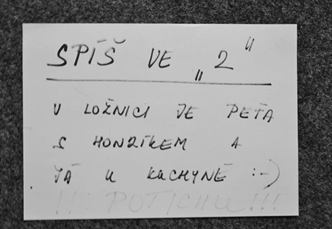 SPÍŠ VE „2“
V LOŽNICI JE PEŤA
S HONZÍKEM A
JÁ V KUCHYNĚ :-)
!! POTICHU !!!